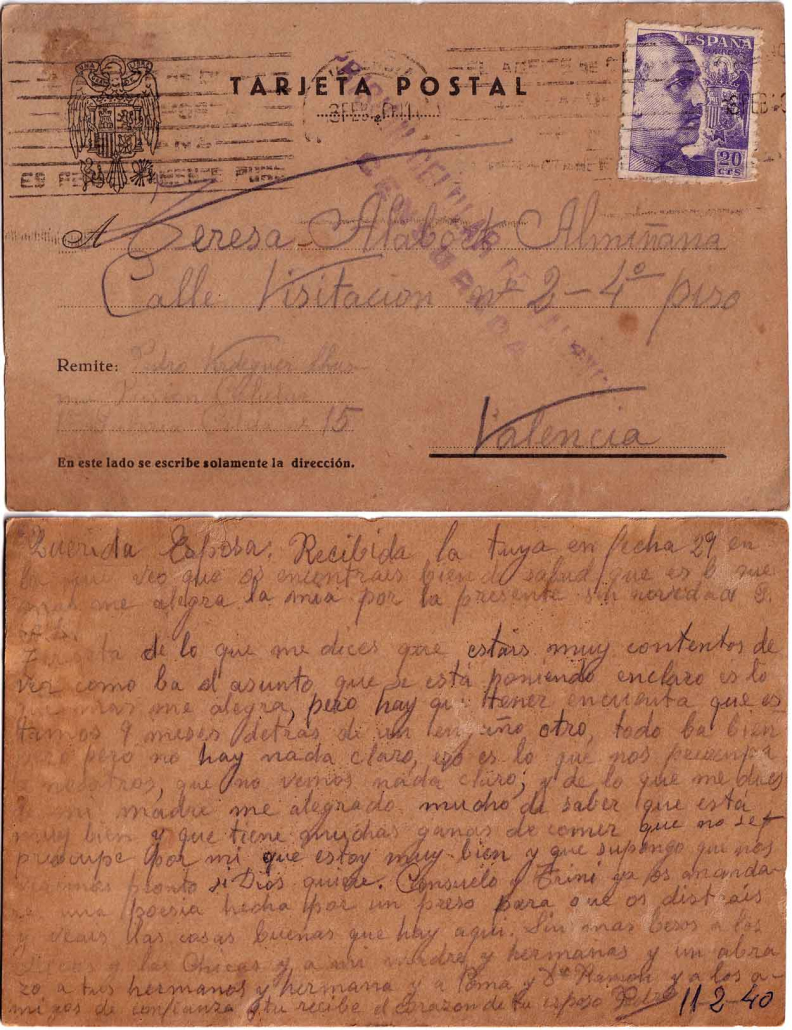 TARJETA POSTAL
ESPAÑA
CORREOS
20
CTS
PRISION CELULAR DE VALENCIA
CENSURADA
A Teresa Alabort Almiñana
Calle Visitacion nº 2-4º piso
Remite: Pedro
15
Valencia
En este lado se escribe solamente la dirección.
Querida Esposa: Recibida la tuya en fecha 29 en
la que veo que os encontrais bien de salud que es lo que
mas me alegra la mia por la presente sin novedad
de lo que me dices que estais muy contentos de
ver como ba el asunto que se está poniendo enclaro es lo
que mas me alegra, pero hay que tener encuenta que es
tamos 9 meses detras de un engaño otro, todo ba bien
pero no hay nada claro, eso es lo que nos preocupa
a nosotros, que no vemos nada claro; y de lo que me dices
de mi madre me alegrado mucho de saber que esta
muy bien y que tiene muchas ganas de comer que no se
preocupe por mi que estoy muy bien y que supongo que nos
veremos pronto si Dios quiere. Consuelo y Trini ya os manda
ra una poesia hecha por un preso para que os distrais
y veais las cosas buenas que hay aqui. Sin mas besos a los
Chicos y las Chicas y a mi madre y hermanas y un abra
zo a tus hermanos y hermana y a Poma y Dº Ramon y a los a-
migos de confianza y tu recibe el corazon de tu esposo Pedro 11-2-40